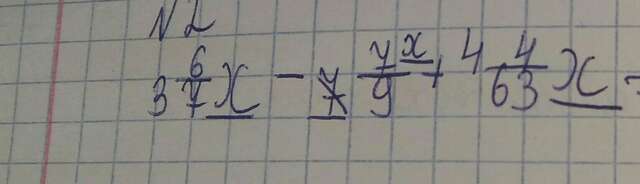 N 2
3 6/7 x - 7/9 x + 4 4/63 x =